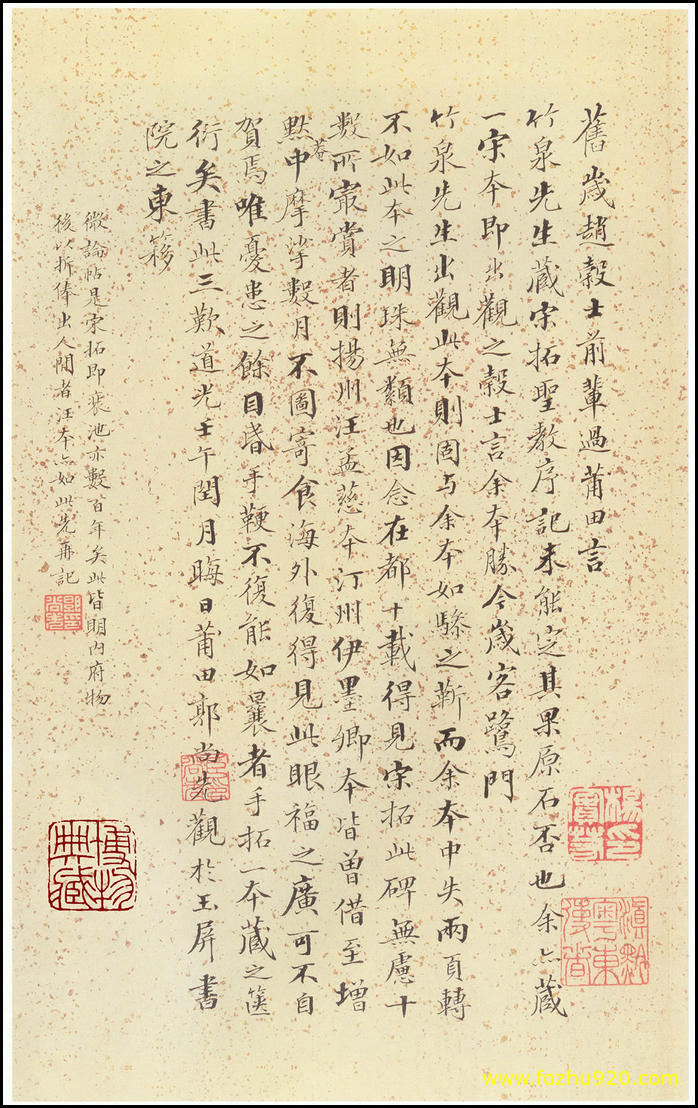 舊歲趙穀士前輩過莆田言
竹泉先生藏宋拓聖教序記未能定其果原石否也余亦藏
一宋本即出觀之穀士言余本勝今歲客鷺門
竹泉先生出觀此本則固与余本如驂之靳而余本中失兩頁轉
不如此本之明珠無纇也因念在都十載得見宋拓此碑無慮十
數所最賞者則揚州汪孟慈本汀州伊墨卿本皆曾借至增
默菴中摩挲數月不圖寄食海外復得見此眼福之廣可不自
賀焉唯憂患之餘目昏手鞕不復能如曩者手拓一本藏之篋
衍矣書此三歎道光壬午閏月晦日莆田郭尚先觀於玉屏書
院之東簃
微論帖是宋拓即裝池亦數百年矣此皆明內府物
後以折俸出人間者汪本亦如此先再記
博物
典藏
www.fozhu920.com